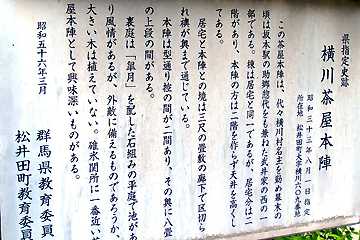 県指定史跡
横川茶屋本陣
昭和三十三年八月一日指定
所在地 松井田町大字横川六〇九番地
この茶屋本陣は、代々横川村名主を勤め幕末の
頃は坂本宿の助郷惣代をも兼ねた武井家の西の一
部である。棟は居宅と同一であるが、居宅分は二
階があり、本陣の方は二階を作らず天井を高くし
てある。
居宅と本陣との境は三尺の畳敷の廊下で区切ら
れ襖が奥まで通じている。
本陣は型通り控の間が二間あり、その奥に八畳
の上段の間がある。
裏庭は「皐月」を配した石組みの平庭で池があ
り風情があるが、外敵に備えるものであろうか、
大きい木は植えていない。碓氷関所に一番近い茶
屋本陣として興味深いものがある。
昭和五十六年三月
群馬県教育委員
松井田町教育委員